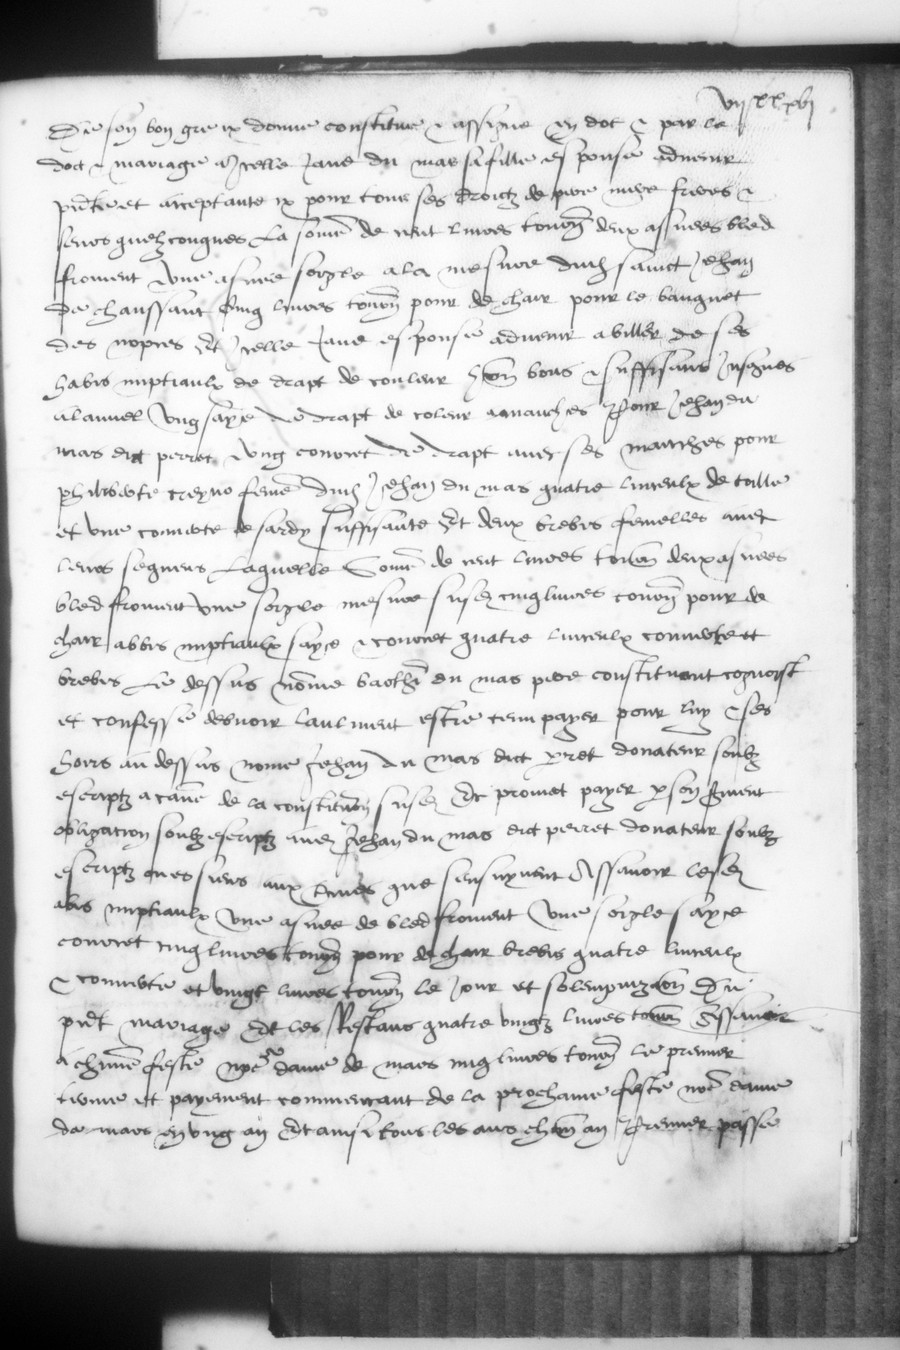 vii xx xvi
De son bon gre ix donne constitue & assigne en dot & par la
dot & mariage d'icelle Jane du mas sa fille esponse advenir
pnte et acceptante ix pour tous ses droictz de pere mere freres &
seurs quelzconques La some de cent livres tourn deux asnees bled
froment & une asnee seigle a la mesure dud sainct Jehan
De chaussant Cinq livres tourn pour de chair pour le banquet
des nopces Et icelle Jane esponse advenir abiller de ses
habis nuptiaulx de drapt de couleur bons & suffisans
ung saye de drapt de coleur a manches Pour Jehan du
mas dict perret & ung concret de drapt avec ses manches pour
philiberte creyno feme dud Jehan du mas quatre linceulx de toille
et une couverte de sardy suffisante Et deux brebis femelles avec
leurs segneus Laquelle Some de cent livres tourn deux asnees
bled froment une seigle mesure susd cinq livres tourn pour de
chair abbis nuptiaulx saye & concret quatre linceulx couverte et
brebis Le dessus nome du mas pere constituant cognoist
et confesse debvoir estre tenu payer pour luy & ses
hoirs au dessus nome Jehan du mas dict perret donateur soubz
escriptz a cause de la constitution susd Et promet payer
obligation soubz escriptz aud Jehan du mas dict perret donateur soubz
escriptz ou es siens aux termes que sensuyvent Assavoir lesd
abis nuptiaulx une asnee de bled froment une seigle saye
concret cinq livres tourn pour de chair brebis quatre linceulx
& couverte et vingt livres tourn le jour et solempnization Du
pnt mariage Et les Restans quatre vingtz livres tourn Assavoir
a chune feste nre dame de mars cinq livres tourn le premier
terme et payement commencant de la prochaine feste nre dame
de mars en ung an Et ainsi tous les ans chun an Premier passe